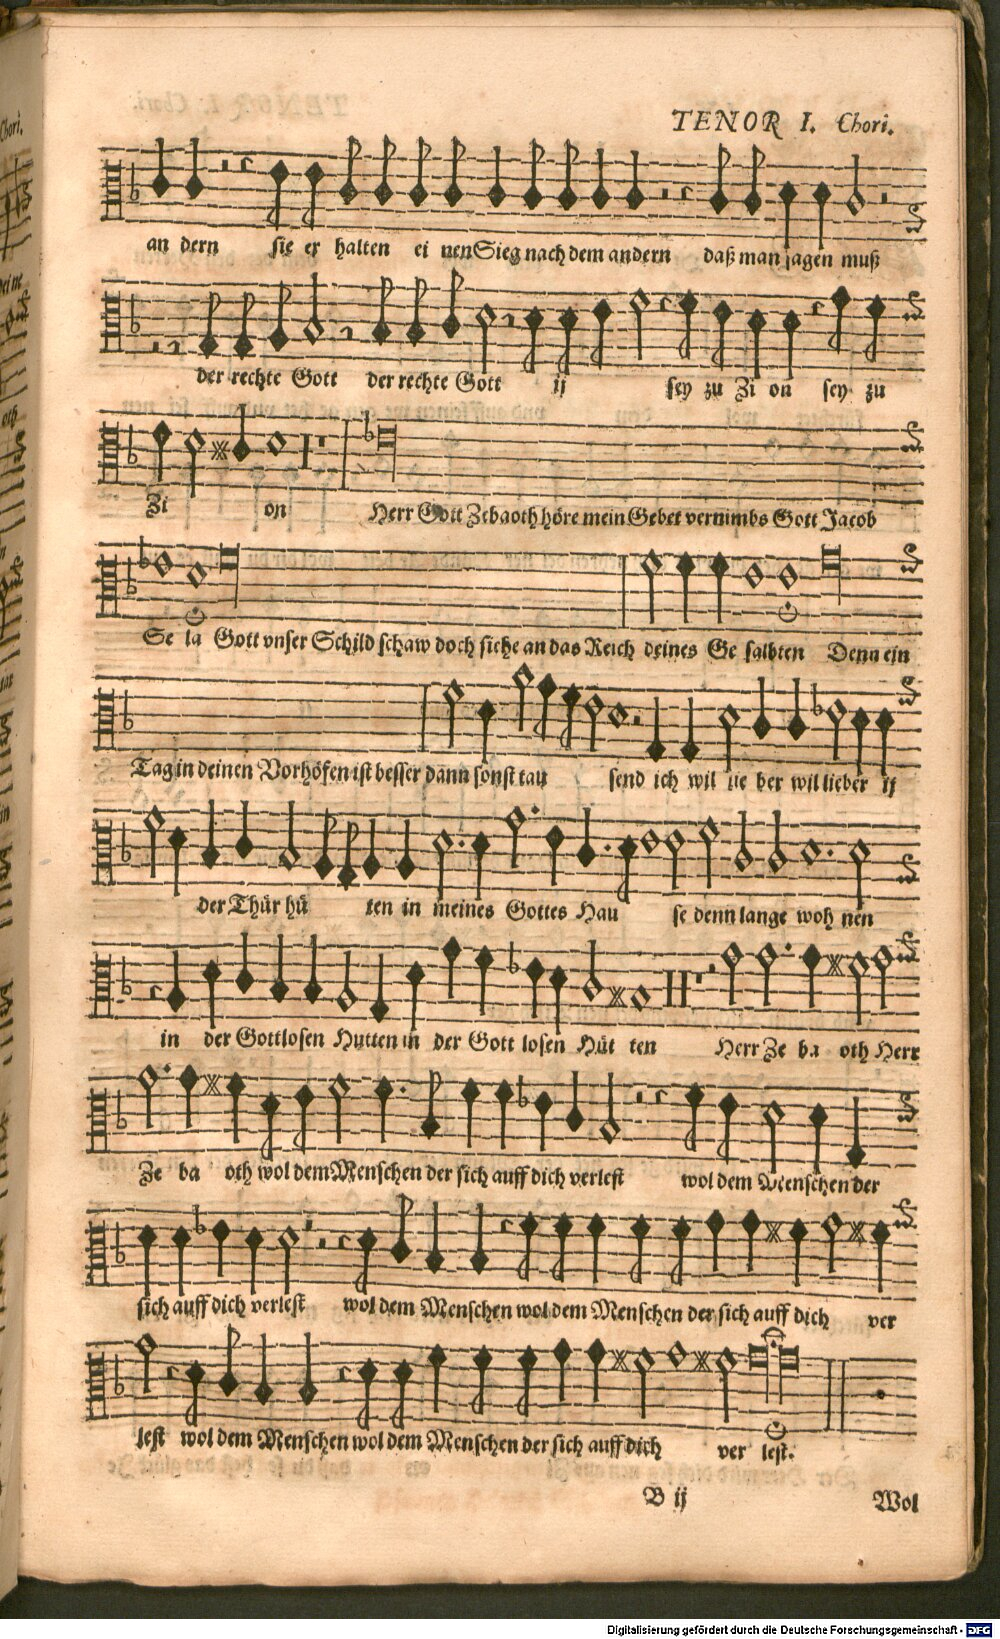 TENOR I. Chori.
an dern sie er halten ei nen Sieg nach dem andern daß man jagen muß
der rechte Gott der rechte Gott ij sey zu Zi on sey zu
Zi on Herr Gott Zebaoth höre mein Gebet vernimbs Gott Jacob
Se la Gott vnser Schild schaw doch siehe an das Reich deines Ge salbten Denn ein
Tag in deinen Vorhöfen ist besser dann sonst tau send ich wil lie ber wil lieber ij
der Thür hü ten in meines Gottes Hau se denn lange woh nen
in der Gottlosen Hutten in der Gott losen Hüt ten Herr Ze ba oth Herr
Ze ba oth wol dem Menschen der sich auff dich verlest wol dem Menschen der
sich auff dich verlest wol dem Menschen wol dem Menschen der sich auff dich ver
lest wol dem Menschen wol dem Menschen der sich auff dich ver lest.
B ij Wol
Digitalisierung gefördert durch die Deutsche Forschungsgemeinschaft - DFG